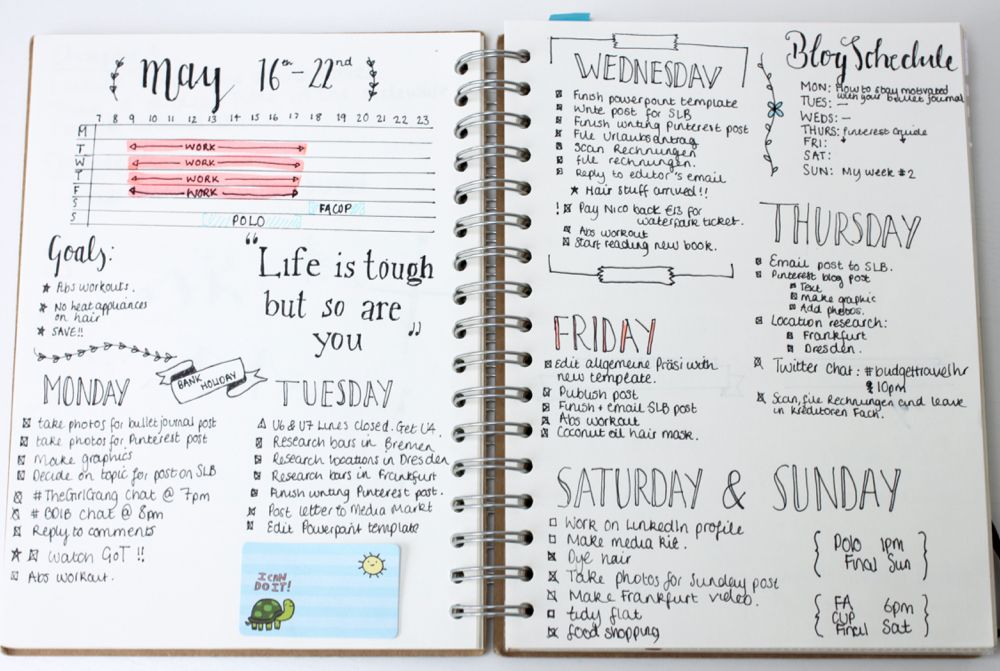 May 16th-22nd
7 8 9 10 11 12 13 14 15 16 17 18 19 20 21 22 23
M
T WORK
W WORK
T WORK
F WORK
S FA CUP
S POLO
Goals:
★ Abs workouts.
★ No heat appliances
on hair
★ SAVE!!
"Life is tough
but so are
you"
BANK HOLIDAY
MONDAY
take photos for bullet journal post
take photos for Pinterest post
Make graphics
Decide on topic for post on SLB
#TheGirlGang chat @ 7pm
chat @ 8pm
Reply to comments
★ Watch GoT !!
Abs workout.
TUESDAY
U6 & U7 Lines closed. Get U4.
Research bars in Bremen
Research locations in Dresden
Research bars in Frankfurt
Finish writing Pinterest post.
Post letter to Media Markt
Edit Powerpoint template
I CAN
DO IT!
WEDNESDAY
Finish powerpoint template
Write post for SLB
Finish writing Pinterest post
File Urlaubsantrag
Scan Rechnungen
file rechnungen.
Reply to editor's email
★ Hair stuff arrived!!
! Pay Nico back €13 for
waterpark ticket.
Abs workout
Start reading new book.
FRIDAY
Edit allgemeine Präsi with
new template.
Publish post
Finish + email SLB post
Abs workout
Coconut oil hair mask.
Blog Schedule
MON: How to stay motivated
with your bullet journal
TUES: —
WEDS: —
THURS: Pinterest Guide
FRI:
SAT:
SUN: My week #2
THURSDAY
Email post to SLB.
Pinterest blog post
Text
Make graphic
Add photos.
Location research:
Frankfurt
Dresden.
Twitter chat: #budgettravelhr
10pm
Scan, file Rechnungen and leave
in Kreditoren Fach.
SATURDAY & SUNDAY
Work on LinkedIn profile
Make media kit.
Dye hair
Take photos for Sunday post
Make Frankfurt video.
tidy flat
food shopping
Polo 1pm
Final Sun
FA 6pm
CUP
Final Sat